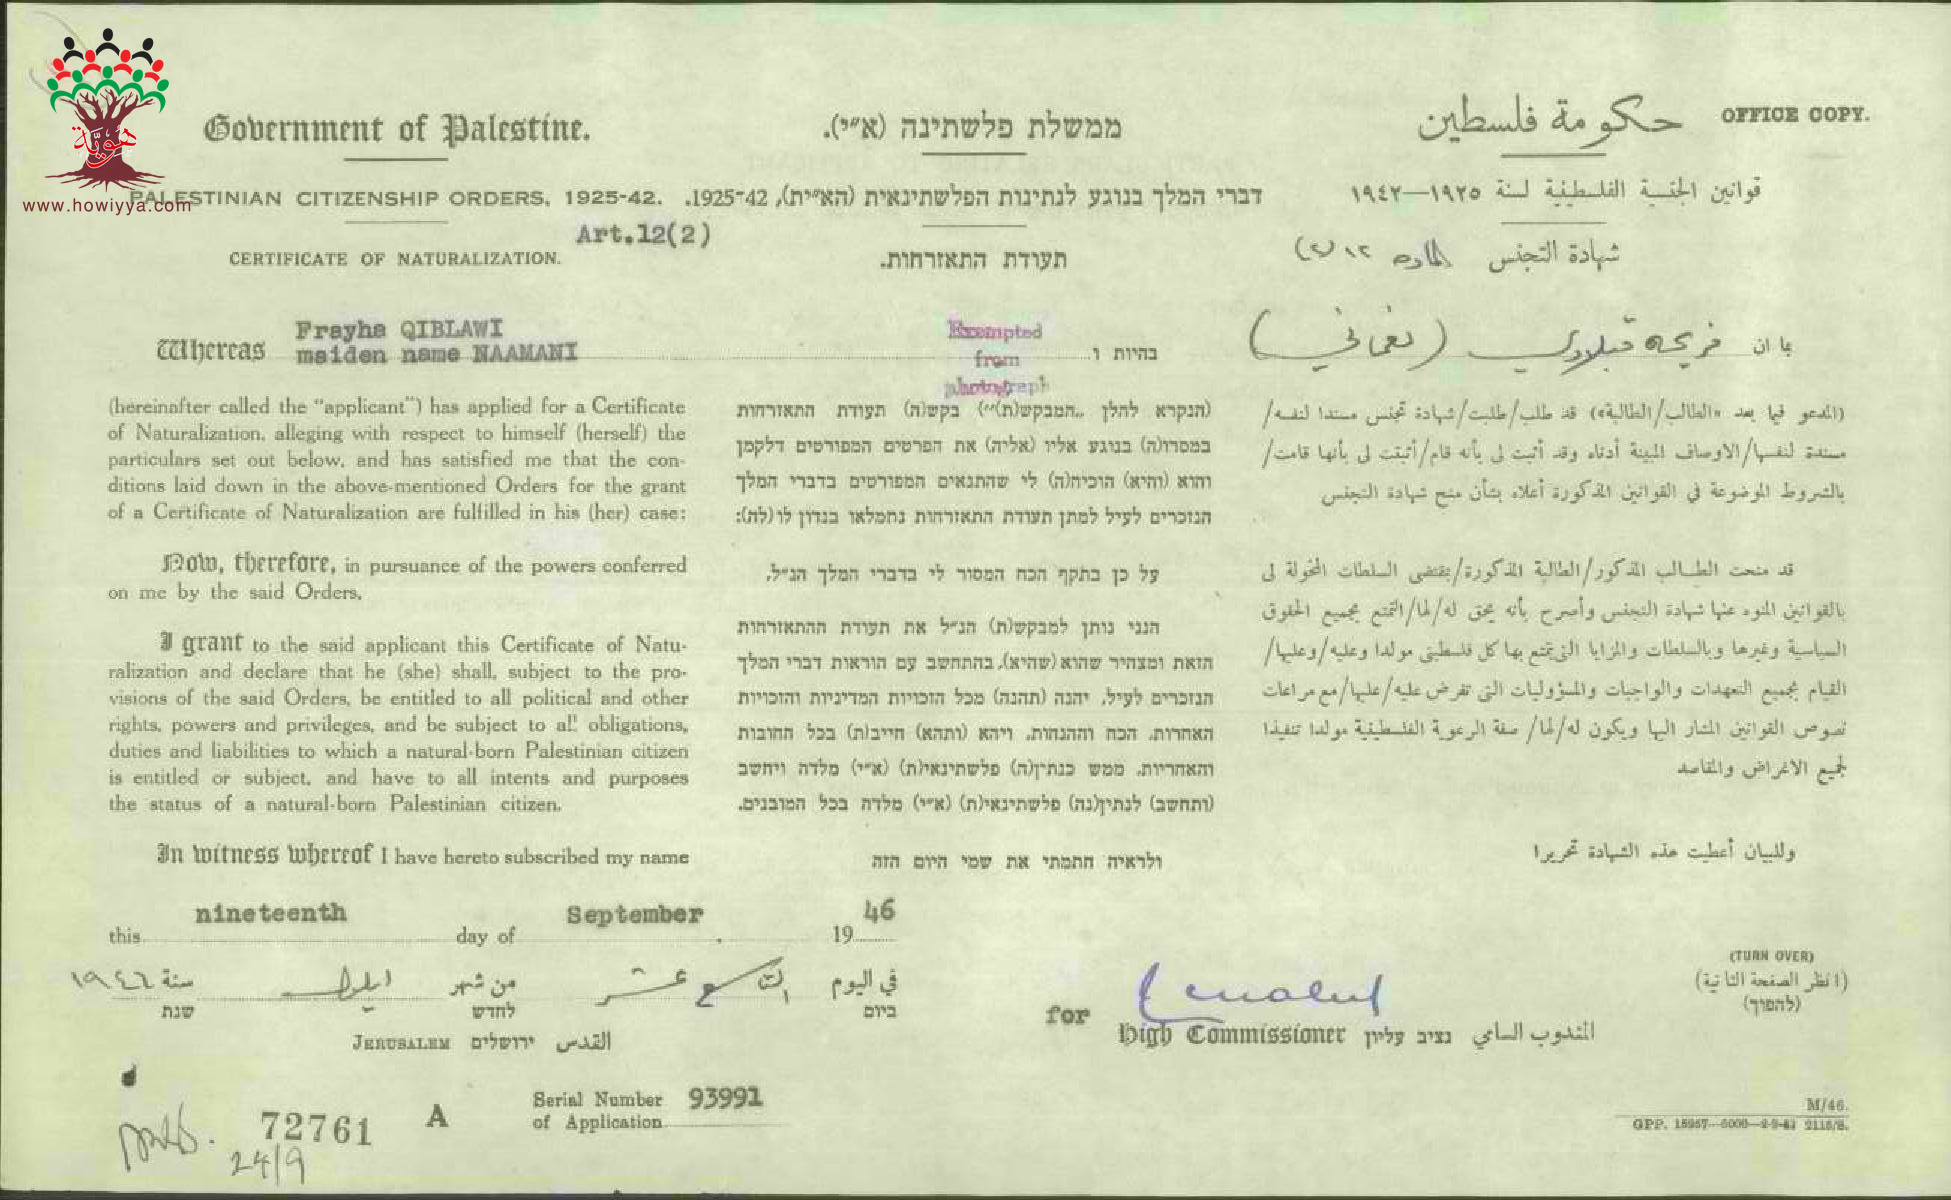 هَويَّة
www.howiyya.com
OFFICE COPY.
Government of Palestine.
PALESTINIAN CITIZENSHIP ORDERS, 1925-42.
Art.12(2)
CERTIFICATE OF NATURALIZATION.
Whereas Frayha QIBLAWI
maiden name NAAMANI
(hereinafter called the "applicant") has applied for a Certificate
of Naturalization, alleging with respect to himself (herself) the
particulars set out below, and has satisfied me that the con-
ditions laid down in the above-mentioned Orders for the grant
of a Certificate of Naturalization are fulfilled in his (her) case:
Now, therefore, in pursuance of the powers conferred
on me by the said Orders,
I grant to the said applicant this Certificate of Natu-
ralization and declare that he (she) shall, subject to the pro-
visions of the said Orders, be entitled to all political and other
rights, powers and privileges, and be subject to all obligations,
duties and liabilities to which a natural-born Palestinian citizen
is entitled or subject, and have to all intents and purposes
the status of a natural-born Palestinian citizen.
In witness whereof I have hereto subscribed my name
ממשלת פלשתינה (א״י).
דברי המלך בנוגע לנתינות הפלשתינאית (הא״ית), 1925-42.
תעודת התאזרחות.
Exempted
from
photograph
בהיות ו
(הנקרא להלן „המבקש(ת)״) בקש(ה) תעודת התאזרחות
במסרו(ה) בנוגע אליו (אליה) את הפרטים המפורטים דלקמן
והוא (והיא) הוכיח(ה) לי שהתנאים המפורטים בדברי המלך
הנזכרים לעיל למתן תעודת התאזרחות נתמלאו בנדון לו (לה):
על כן בתקף הכח המסור לי בדברי המלך הנ״ל,
הנני נותן למבקש(ת) הנ״ל את תעודת ההתאזרחות
הזאת ומצהיר שהוא (שהיא), בהתחשב עם הוראות דברי המלך
הנזכרים לעיל, יהנה (תהנה) מכל הזכויות המדיניות והזכויות
האחרות, הכח וההנחות, ויהא (ותהא) חייב(ת) בכל החובות
והאחריות, ממש כנתין(ה) פלשתינאי(ת) (א״י) מלדה ויחשב
(ותחשב) לנתין(נה) פלשתינאי(ת) (א״י) מלדה בכל המובנים.
ולראיה חתמתי את שמי היום הזה
حكومة فلسطين
قوانين الجنسية الفلسطينية لسنة ١٩٢٥—١٩٤٢
شهادة التجنس المادة ١٢ (٢)
بما ان فريحه قبلاوي (نعماني)
(المدعو فيما بعد «الطالب/الطالبة») قد طلب/طلبت/شهادة تجنس مسندا لنفسه/
مسندة لنفسها/الاوصاف المبينة أدناه وقد أثبت لي بأنه قام/أثبتت لي بأنها قامت/
بالشروط الموضوعة في القوانين المذكورة أعلاه بشأن منح شهادة التجنس
قد منحت الطالب المذكور/الطالبة المذكورة/بمقتضى السلطات المخولة لي
بالقوانين المنوه عنها شهادة التجنس وأصرح بأنه يحق له/لها/التمتع بجميع الحقوق
السياسية وغيرها وبالسلطات والمزايا التي يتمتع بها كل فلسطيني مولدا وعليه/وعليها/
القيام بجميع التعهدات والواجبات والمسؤوليات التي تفرض عليه/عليها/مع مراعات
نصوص القوانين المشار اليها ويكون له/لها/ صفة الرعوية الفلسطينية مولدا تنفيذا
لجميع الاغراض والمقاصد
وللبيان أعطيت هذه الشهادة تحريرا
this nineteenth day of September 1946
في اليوم التاسع عشر من شهر ايلول سنة ١٩٤٦
ביום לחדש שנת
JERUSALEM ירושלים القدس
for
High Commissioner נציב עליון المندوب السامي
(TURN OVER)
(انظر الصفحة الثانية)
(להפוך)
72761 A
24/9
Serial Number 93991
of Application
M/46.